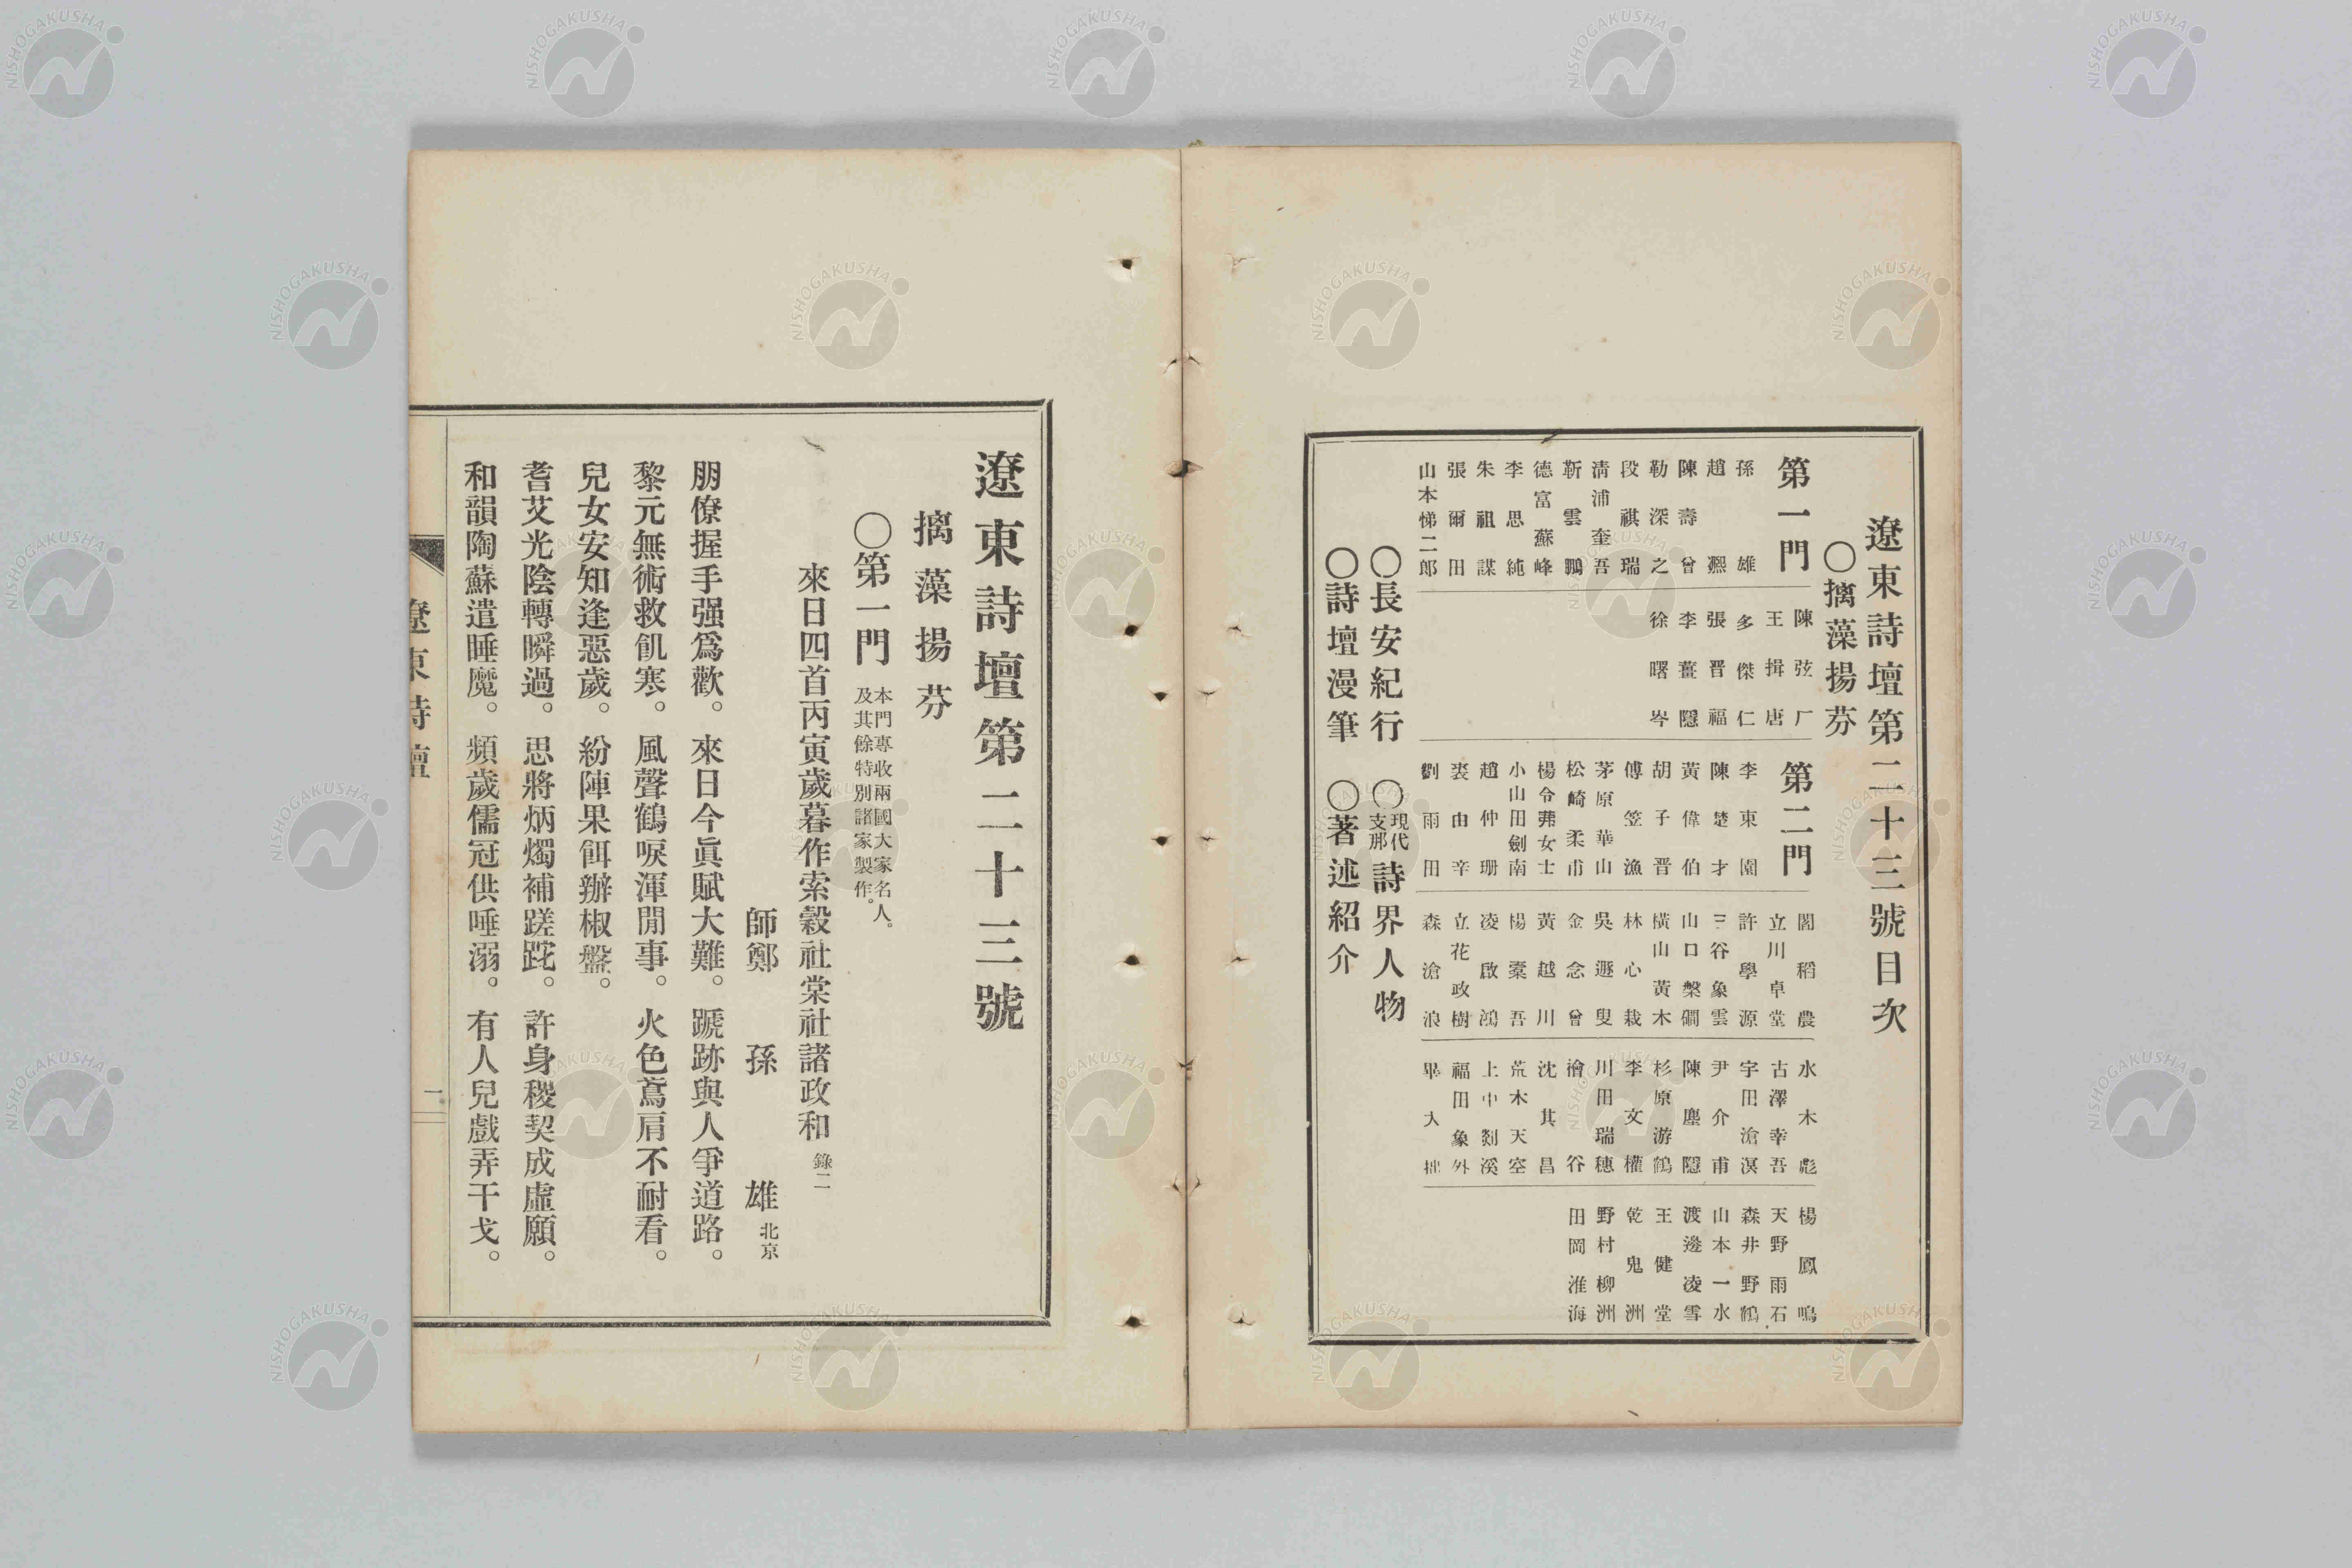 遼東詩壇第二十三號目次
○摛藻揚芬
第一門
孫雄
趙㷼
陳壽曾
勒深之
段祺瑞
清浦奎吾
靳雲鵬
德富蘇峰
李思純
朱祖謀
張爾田
山本悌二郎
陳弦厂
王揖唐
多傑仁
張晋福
李薑隱
徐曙岑
第二門
李東園
陳楚才
黃偉伯
胡子晋
傅笠漁
茅原華山
松崎柔甫
楊令茀女士
小山田劍南
趙仲珊
裘由辛
劉雨田
閣稻農
立川卓堂
許學源
三谷象雲
山口槃磵
橫山黃木
林心栽
吳遯叟
金念曾
黃越川
楊槖吾
凌啟鴻
立花政樹
森滄浪
水木彪
古澤幸吾
宇田滄溟
尹介甫
陳塵隱
杉原游鶴
李文權
川田瑞穗
檜谷
沈其昌
荒木天空
上中剡溪
福田象外
畢大拙
楊鳳鳴
天野雨石
森井野鶴
山本一水
渡邊凌雪
王健堂
乾鬼洲
野村柳洲
田岡淮海
○長安紀行
○現代支那詩界人物
○詩壇漫筆
○著述紹介
遼東詩壇第二十三號
摛藻揚芬
○第一門
本門專收兩國大家名人。
及其餘特別諸家製作。
來日四首丙寅歲暮作索穀社棠社諸政和 錄二
師鄭 孫雄 北京
朋僚握手强爲歡。來日今眞賦大難。蹏跡與人爭道路。
黎元無術救飢寒。風聲鶴唳渾閒事。火色鳶肩不耐看。
兒女安知逢惡歲。紛陣果餌辦椒盤。
耆艾光陰轉瞬過。思將炳燭補蹉跎。許身稷契成虛願。
和韻陶蘇遣睡魔。頻歲儒冠供唾溺。有人兒戲弄干戈。
遼東詩壇
一
NISHOGAKUSHA